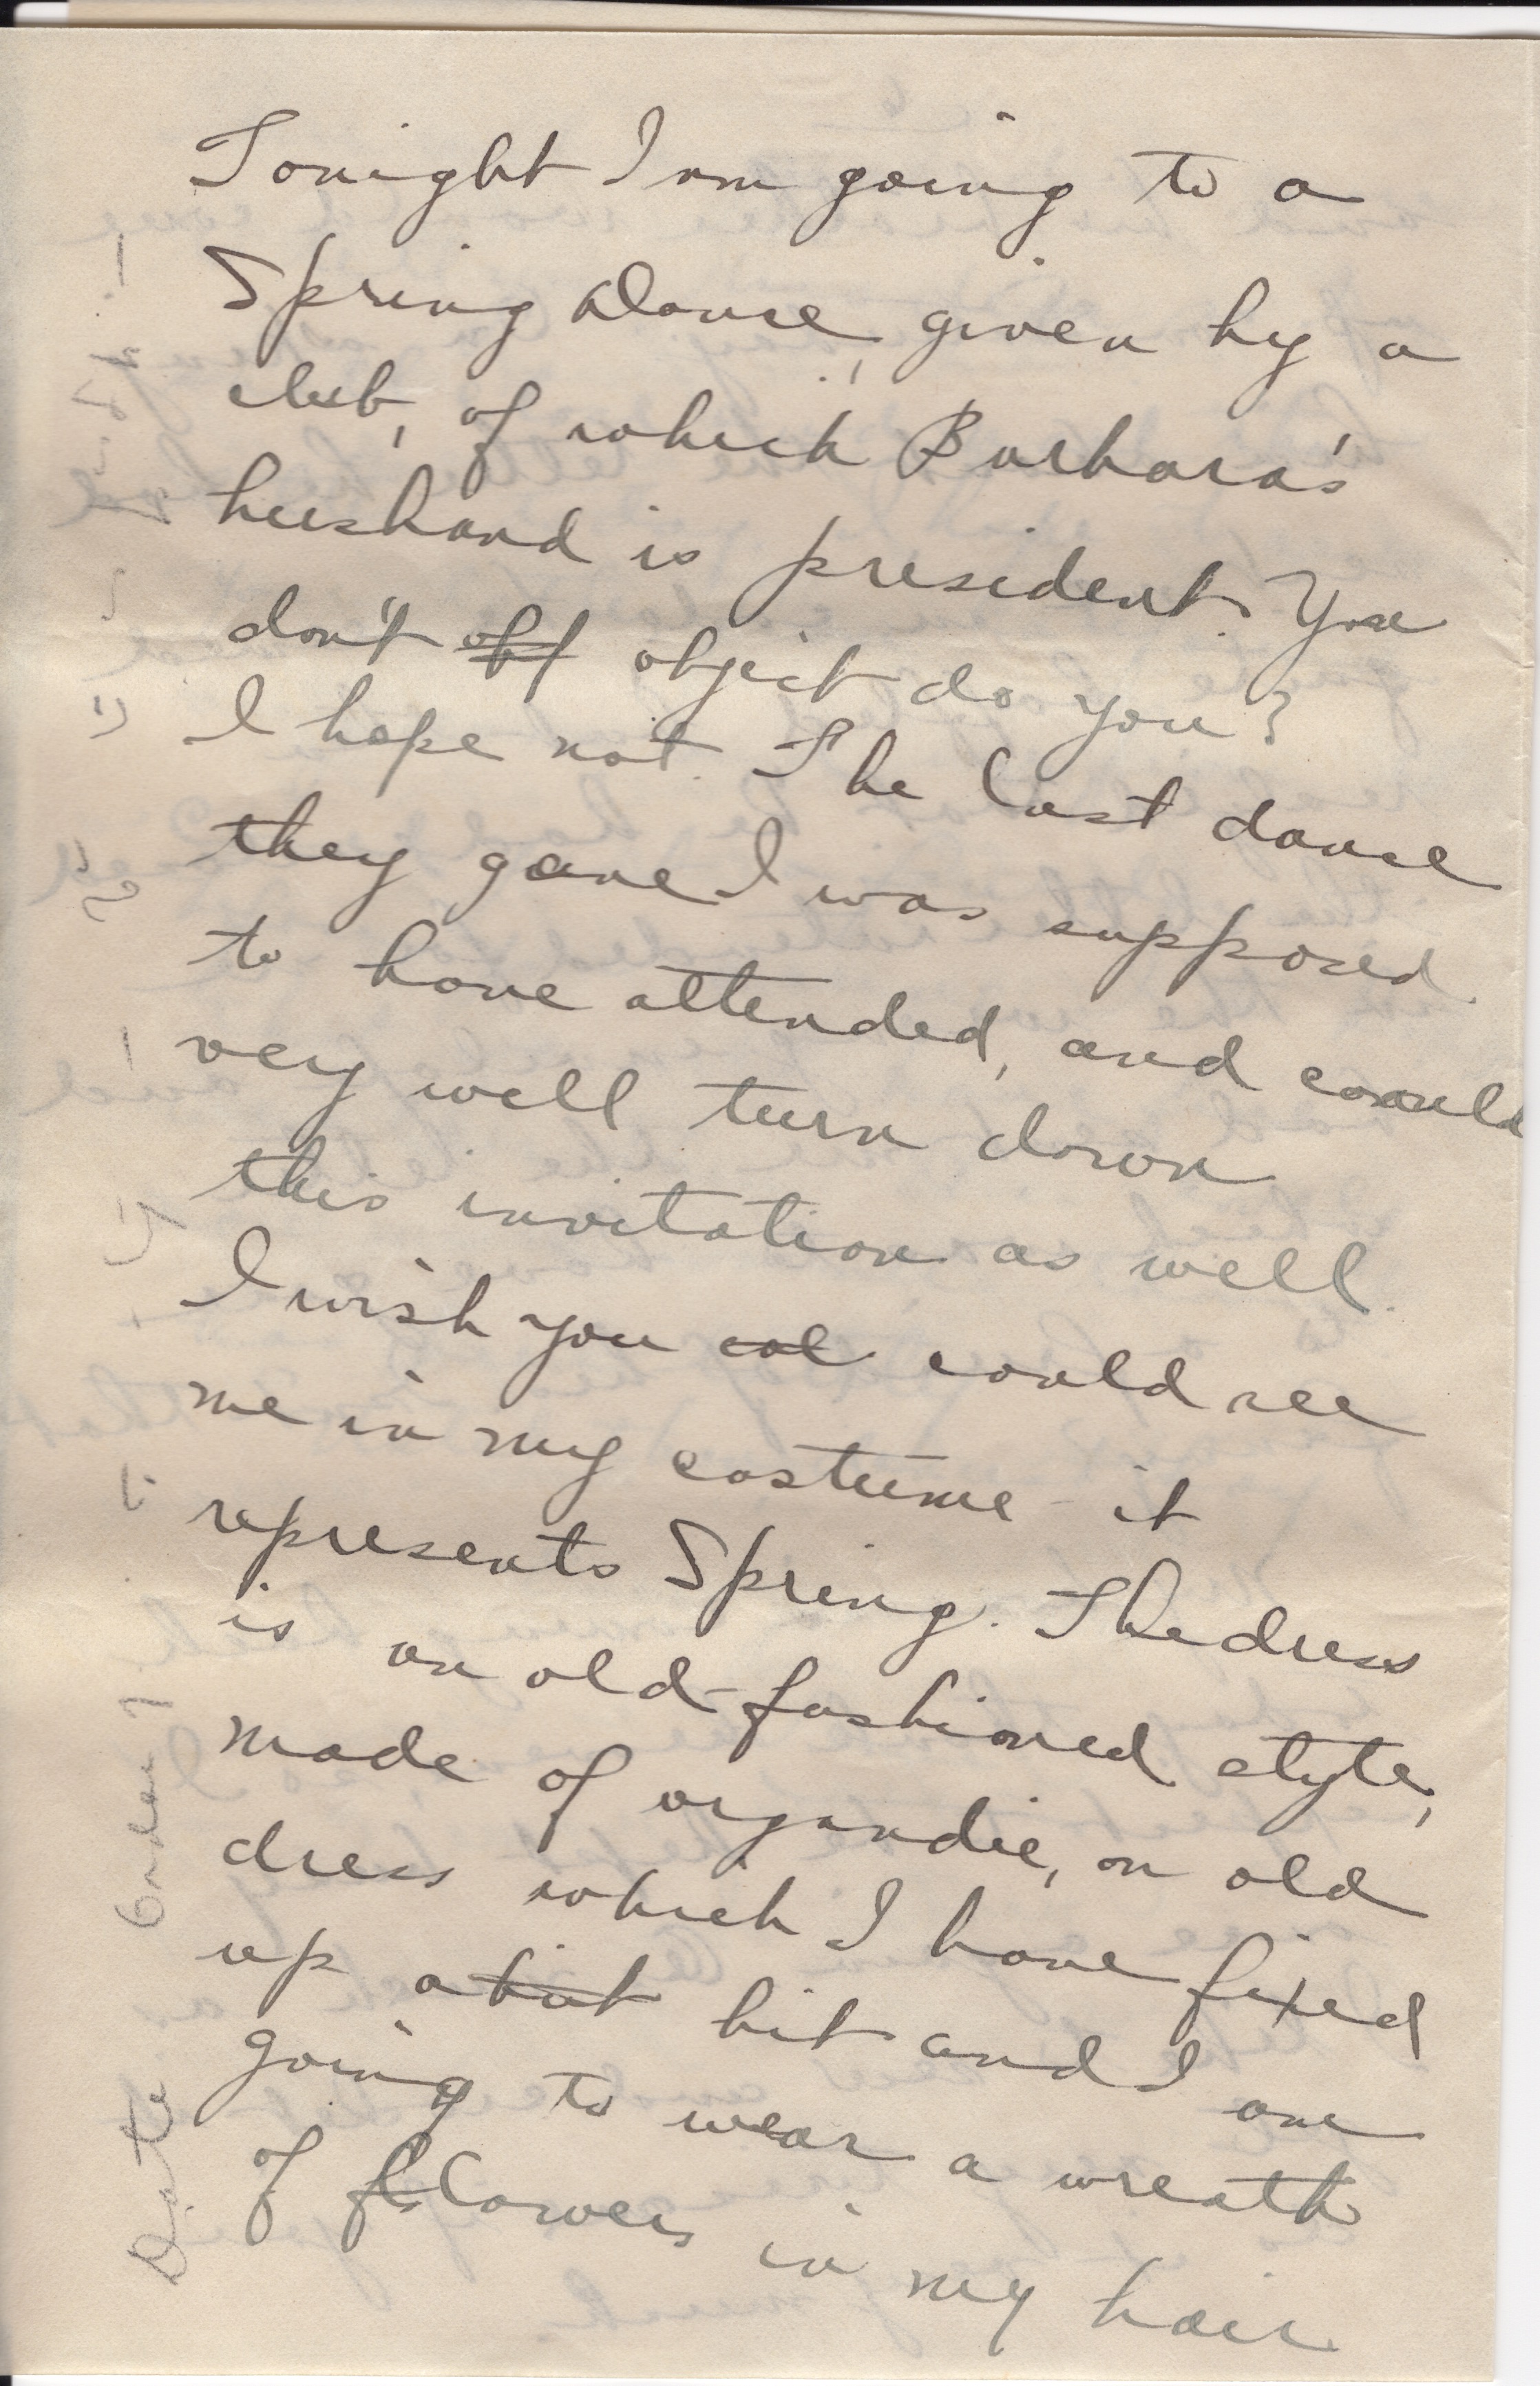 Tonight I am going to a
Spring Dance, given by a
club, of which Barbara's
husband is president. You
don't off object do you?
I hope not. The last dance
they gave I was supposed
to have attended, and could
very well turn down
this invitation as well.
I wish you col could see
me in my costume - it
represents Spring. The dress
is an old-fashioned style,
made of organdie, an old
dress which I have fixed
up a bit bit and I am
going to wear a wreath
of flowers in my hair